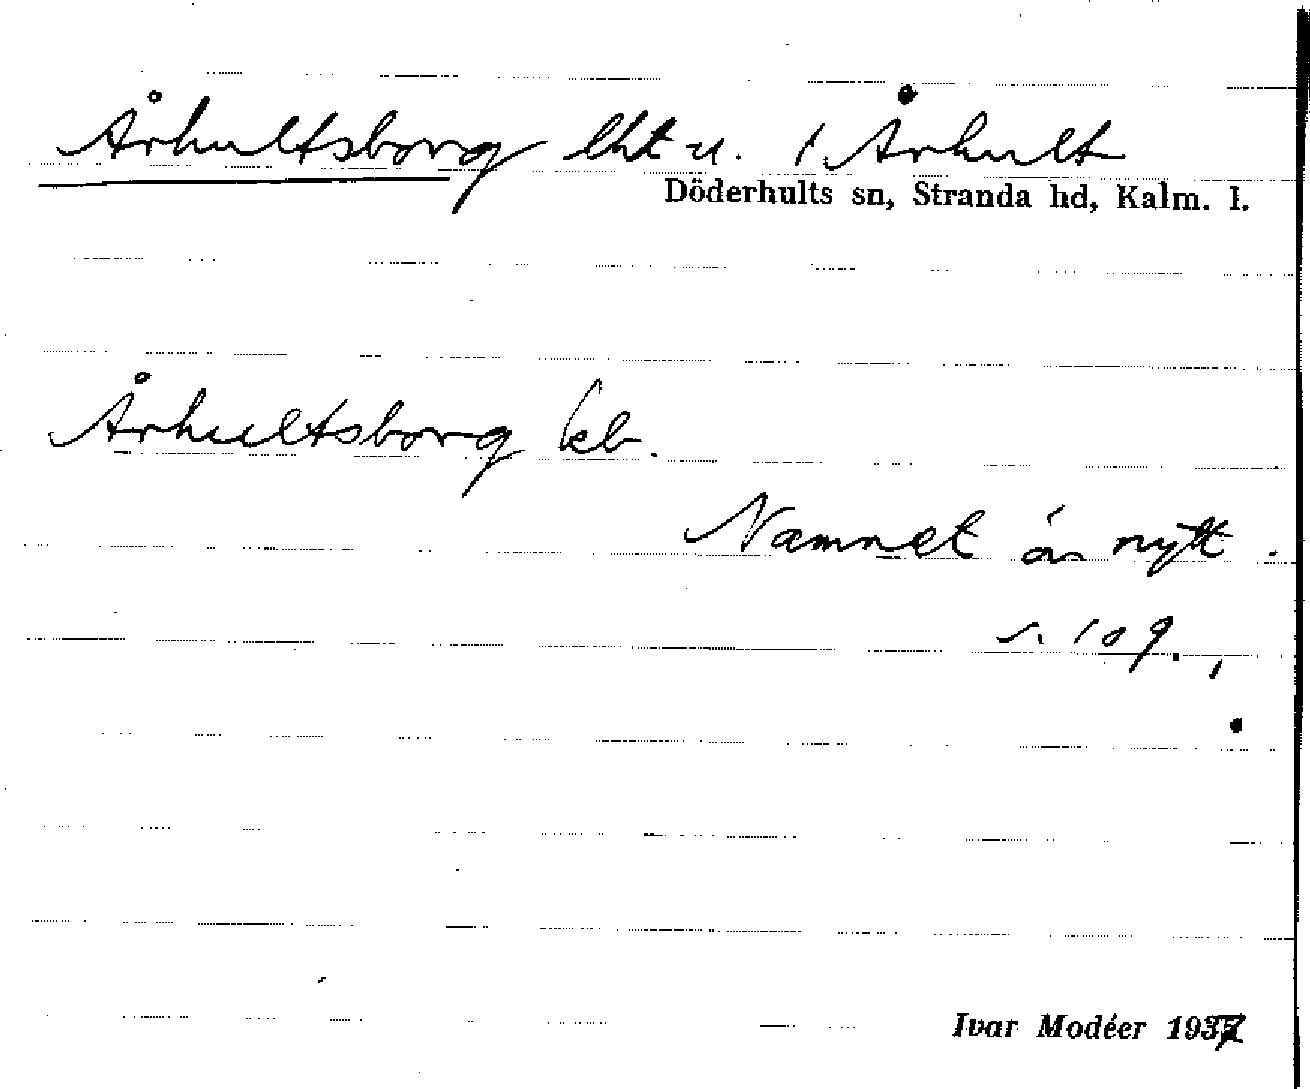 Århultsborg lht u. 1 Århult
Döderhults sn, Stranda hd, Kalm. l.
Århultsborg kb.
Namnet är nytt.
s. 109.
Ivar Modéer 1937